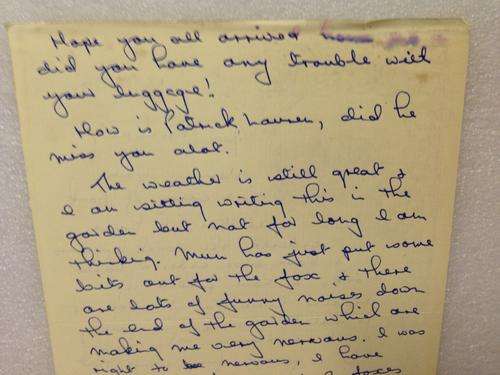 Hope you all arrived home
did you have any trouble with
your luggage!
How is Patrick , did he
miss you alot.
The weather is still great &
I am sitting writing this in the
garden but not for long I am
thinking. Mum has just put some
bits out for the fox & there
are lots of funny noises down
the end of the garden which are
making me very nervous. I was
right to be nervous, I have
foxes